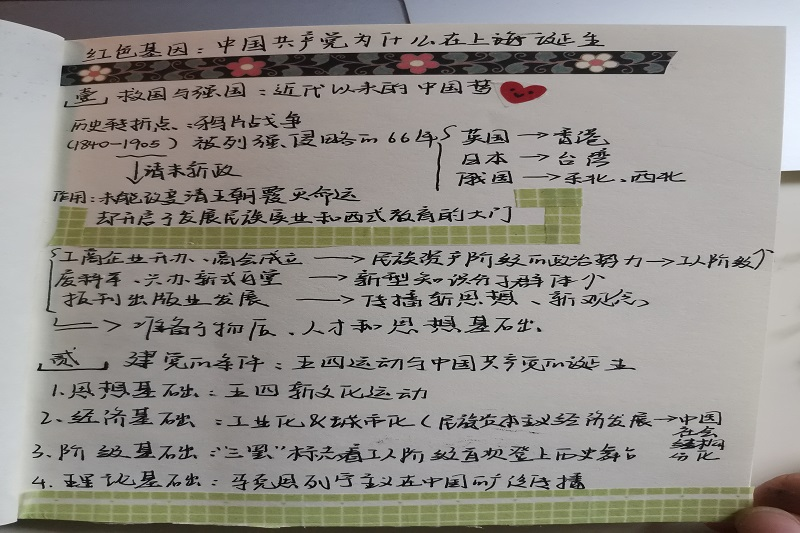 红色基因：中国共产党为什么在上海诞生
壹 救国与强国：近代以来的中国梦
历史转折点：鸦片战争
(1840-1905) 被列强侵略的66年
英国→香港
日本→台湾
俄国→东北、西北
↓清末新政
作用：未能改变清王朝覆灭命运
却开启了发展民族实业和西式教育的大门
工商企业开办、商会成立 → 民族资产阶级的政治势力→工人阶级↑
废科举、兴办新式学堂 → 新型知识分子群体↑
报刊出版业发展 → 传播新思想、新观念
=> 准备了物质、人才和思想基础出.
贰 建党的条件：五四运动与中国共产党的诞生
1.思想基础：五四新文化运动
2.经济基础：工业化&城市化(民族资本主义经济发展→中国
社会
结构
分化
3.阶级基础："三罢"标志着工人阶级首次登上历史舞台
4.理论基础：马克思列宁主义在中国的广泛传播